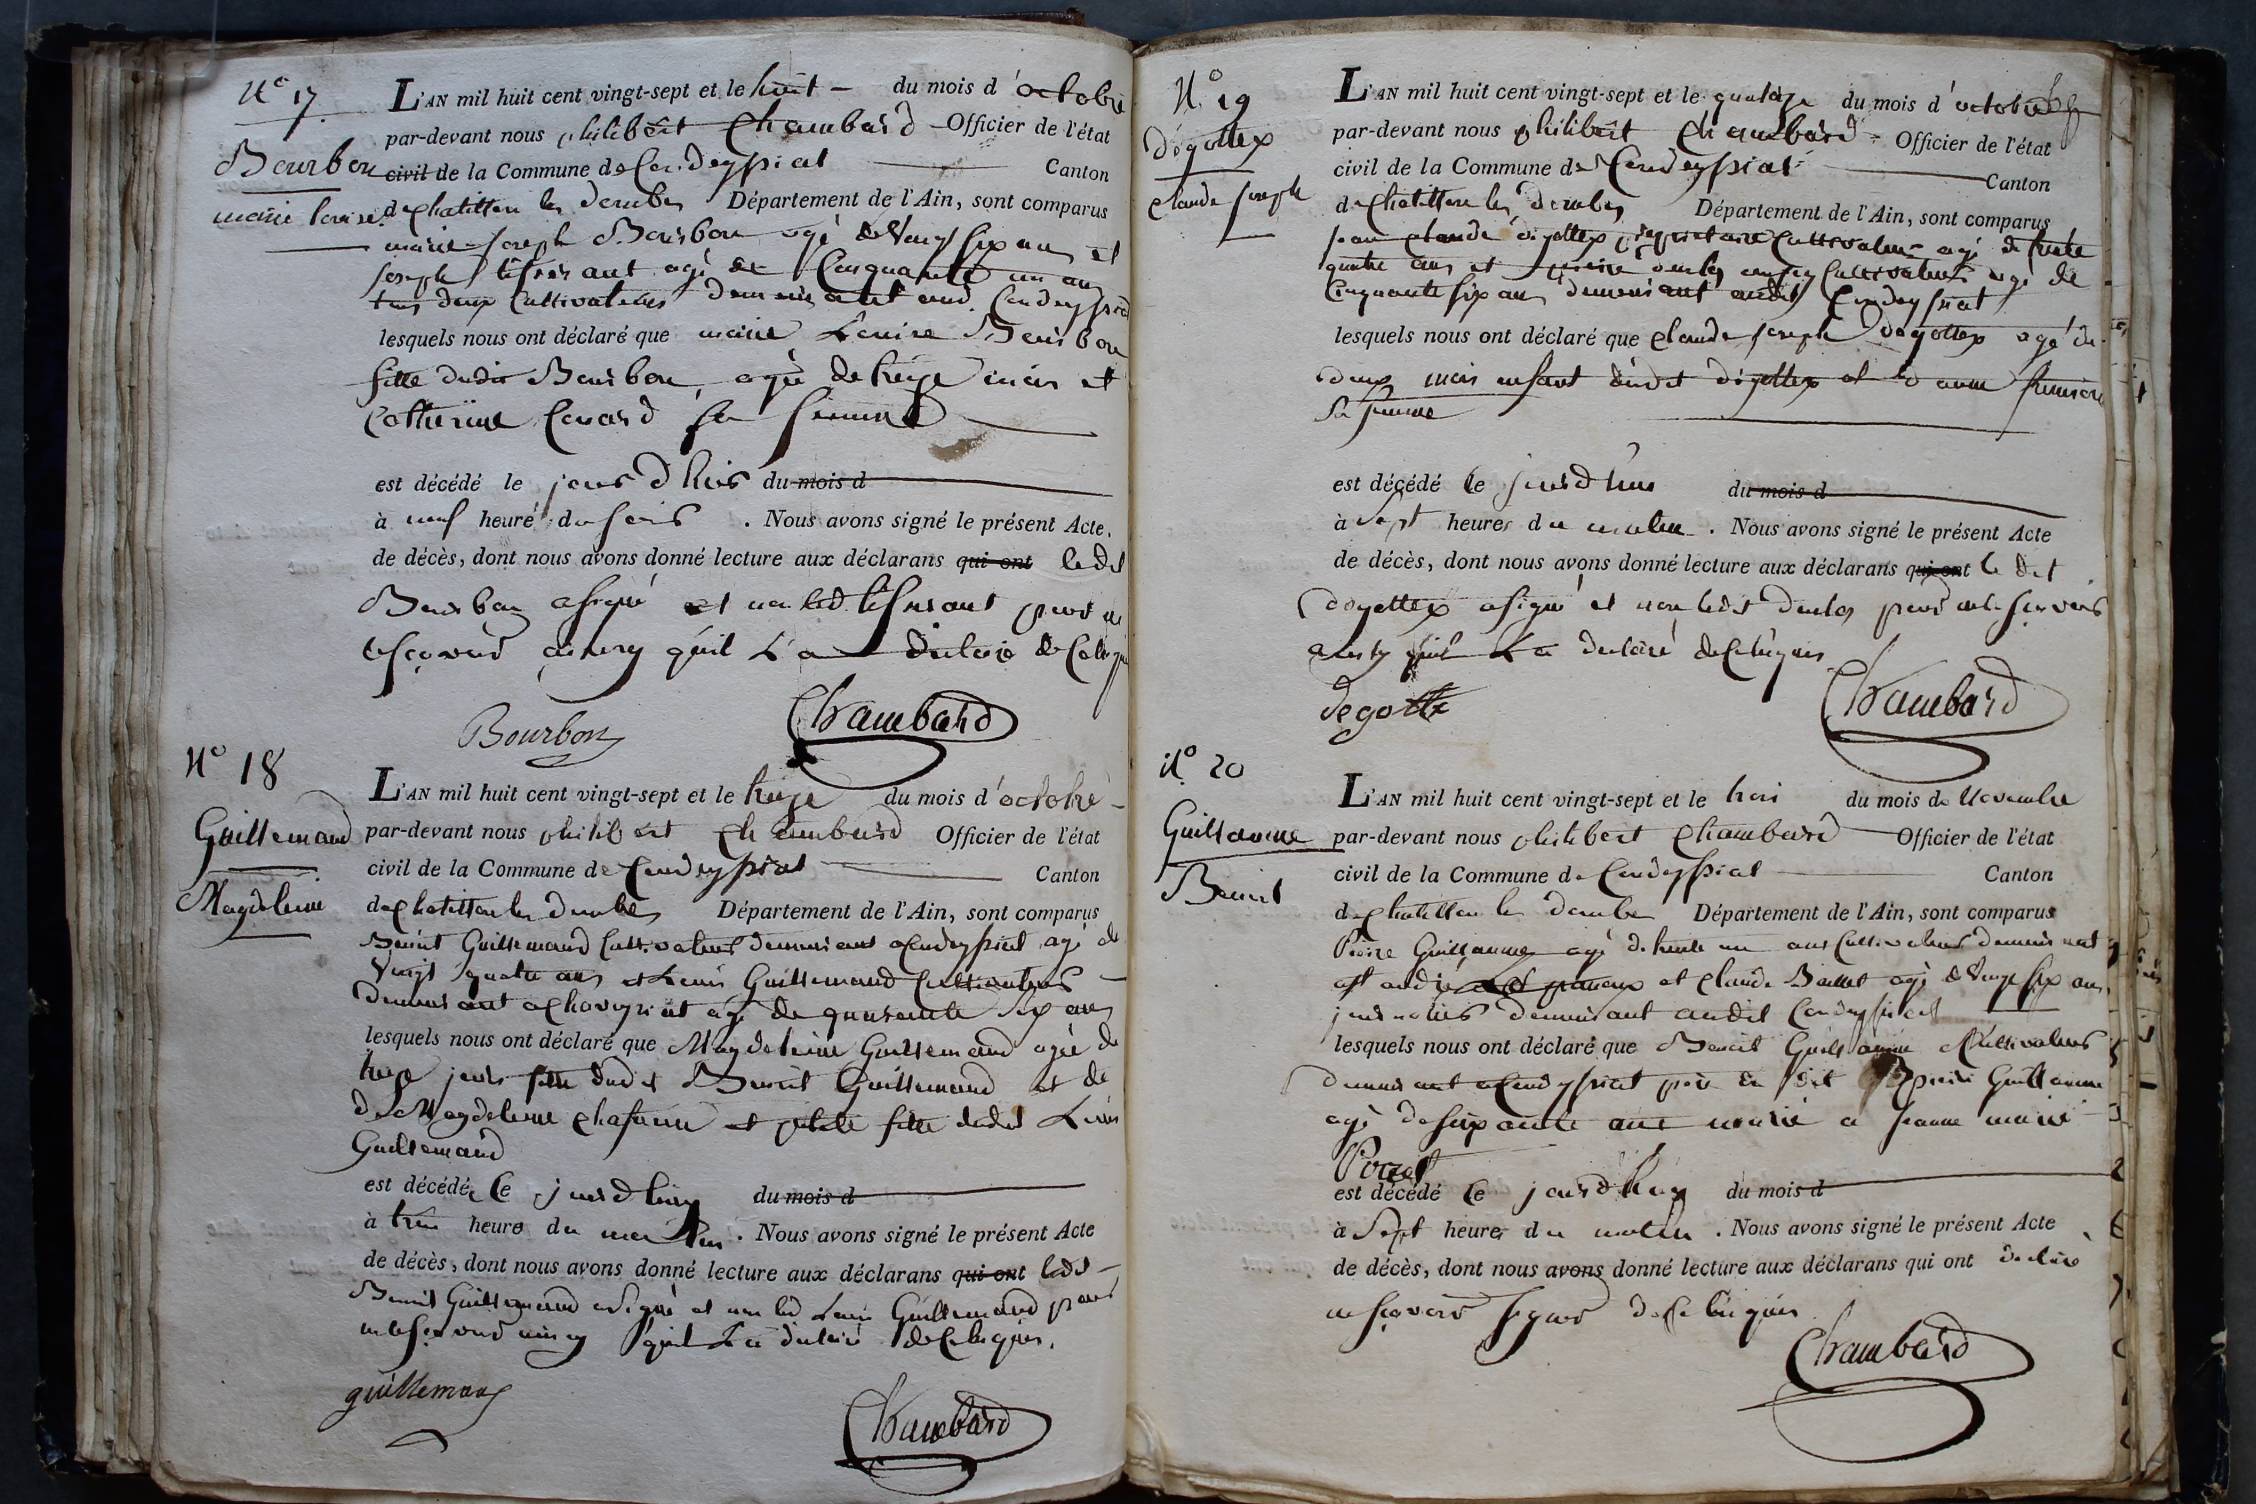 N° 17
Bourbon
marie louise
L'AN mil huit cent vingt-sept et le huit du mois d'octobre
par-devant nous philibert Chambard Officier de l'état
civil de la Commune de Condeyssiat Canton
de chatillon les dombes Département de l'Ain, sont comparus
marie joseph Bourbon agé de vingt six ans et
joseph agé de Cinquante un ans
tous deux Cultivateurs demeurant aud. Condeyssiat
lesquels nous ont déclaré que marie Louise Bourbon
fille dudit Bourbon agée de treize mois et
Catherine sa femme
est décédé le jourd'huis du mois d
à neuf heure du soir . Nous avons signé le présent Acte.
de décès, dont nous avons donné lecture aux déclarans qui ont ledit
Bourbon asigné et non led pour ne
scavoir ainsy quil L a déclaré de Cela requis
Bourbon Chambard
N° 18
Guillemaud
Magdeleine
L'AN mil huit cent vingt-sept et le treize du mois d'octobre
par-devant nous philibert chambard Officier de l'état
civil de la Commune de Condeyssiat Canton
de chatillon les dombes Département de l'Ain, sont comparus
Benoit Guillemaud Cultivateur demeurant a Condeyssiat agé de
Vingt quatre ans et Louis Guillemaud Cultivateur
demeurant a chaveyriat agé de quarante six ans
lesquels nous ont déclaré que Magdeleine Guillemaud agée de
treze jours fille dudit Benoit Guillemaud et de
de Magdeleine et petite fille dudit Louis
Guillemaud
est décédé Le jourd'huy du mois d
à trois heure du matin . Nous avons signé le présent Acte
de décès, dont nous avons donné lecture aux déclarans qui ont ledit
Benoit Guillemaud asigné et non led Louis Guillemaud pour
ne scavoir ainsy quil L a déclaré de Ce requis.
guillemaud
Chambard
N° 19
dégottex
claude joseph
L'AN mil huit cent vingt-sept et le quatorze du mois d'octobre
par-devant nous philibert Chambard Officier de l'état
civil de la Commune de Condeyssiat Canton
de chatillon les dombes Département de l'Ain, sont comparus
jean claude dégottex propriétaire Cultivateur agé de trente
quatre ans et pierre Cultivateur agé de
Cinquante six ans demeurant audit Condeyssiat
lesquels nous ont déclaré que claude joseph dégottex agé de
deux mois enfant dudit dégottex et d anne
sa femme
est décédé le jourd'hui du mois d
à sept heures du matin . Nous avons signé le présent Acte
de décès, dont nous avons donné lecture aux déclarans qui ont le dit
dégottex asigné et non ledit pour ne scavoir
ainsy quil L a déclaré de Ce requis
degottex
Chambard
N° 20
Guillaume
Benoit
L'AN mil huit cent vingt-sept et le trois du mois de Novembre
par-devant nous philibert chambard Officier de l'état
civil de la Commune de Condeyssiat Canton
de chatillon les dombes Département de l'Ain, sont comparus
Pierre Guillaume agé de trente un ans Cultivateur demeurant
a st andré et claude agé de Vingt six ans
journalier demeurant audit Condeyssiat
lesquels nous ont déclaré que Benoit Guillaume Cultivateur
demeurant a Condeyssiat père du dit pierre Guillaume
agé de soixante ans marié a jeanne marie
est décédé Le jourd'huy du mois d
à Sept heures du matin . Nous avons signé le présent Acte
de décès, dont nous avons donné lecture aux déclarans qui ont déclaré
ne scavoir signer de Ce requis
Chambard